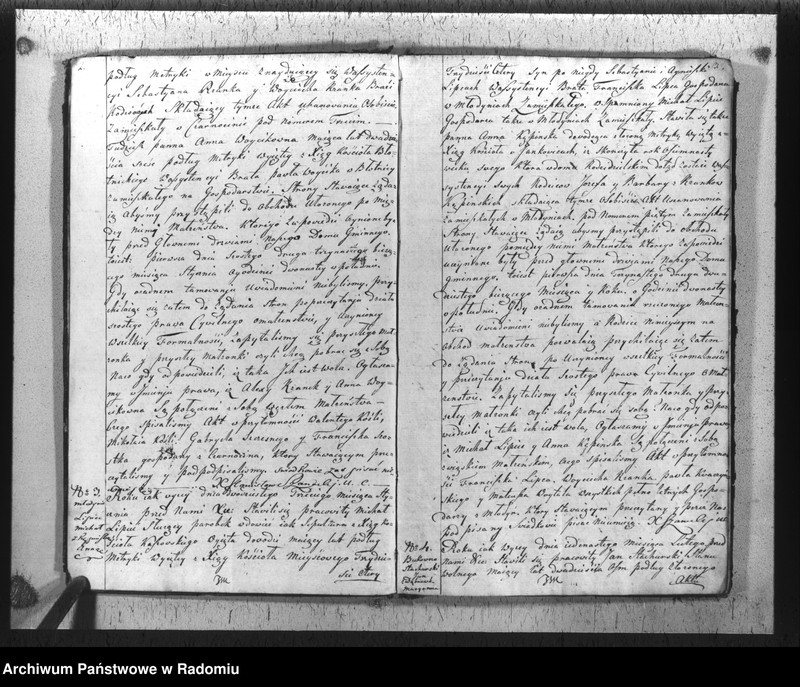 podług Metryki w Mieyscu znayduiącey się w assystencyi Sebastyana Kranka y Woyciecha Kranka Braci
Rodzonych Składaiący tymże Akt uznanowania Osobiście
Zamięszkały w Czarnocinie pod Numerem Trzecim.
Tudzież panna Anna Woycikowna maiąca lat dwadzieścia sześć podług Metryki wyiętey z Xiąg Kościoła
w assystencyi Brata pawła Woycika w
Zamięszkałego na Gospodarstwie. Strony Stawaiące żądaią abysmy przystąpili do obchodu ułożonego po między nimi Małżeństwa. Którego Zapowiedzi uczynione były przed głównemi drzwiami naszego Domu Gminnego.
to iest: pierwsza dnia Szostego druga trzynastego bieżącego miesiąca Stycznia o godzinie dwonasty w południe.
Gdy o żadnem tamowaniu Uwiadomieni niebyliśmy, przychilaiąc się zatem do żądania Stron po przeczytaniu działu
szostego prawa Cywilnego o małżeństwie, y uczynioney
wszelkiey Formalności, Zapytaliśmy się przyszłego Małżonka y przyszłey Małżonki czyli chcą pobrać się z sobą
Na co gdy odpowiedzieli, iż taka Jch iest wola. Ogłaszamy w Jmieniu prawa, iż Alexy Kranek y Anna Woycikowna Są połączeni z Sobą Węzłem Małżeństwa
Czego Spisaliśmy Akt w przytomności Walentego
Mikołaia Gabryela y Franciszka
gospodarzy z Czarnocina, który Stawaiącym przeczytaliśmy y podpodpisaliśmy Swiadkowie zaś pisać nie
X. U. C.
No 3.
Młodynie
Lipiec
Michał
Roku iak wyżey dnia dwódziestego Trzeciego miesiąca Stycznia przed Nami Xię Stawił się pracowity Michał
Lipiec Służący parobek wdowiec iak Sepultura z Xiąg Kościoła Oyczyta dowodzi maiący lat podług
Metryki Wyiętey z Xiąg Kościoła Mieyscowego Trzydzieści Cztery
Trzydzieści Cztery Syn po niegdy Sebastyanie i Agnieszki
Lipcach w assystencyi Brata Franciszka Lipca Gospodarza
w Młodyniach Zamięszkałego. Wspomniony Michał Lipiec
Gospodarz także w Młodyniach Zamięszkały. Stawiła się także
panna Anna Kępinska dowodząca złożoną Metryką wyiętą z
Xiąg Kościoła w Jankowicach, iż skonczyła rok Osimnasty
wieku swego która w domu Rodzicielskim dotąd zostaie w assystencyi Swych Rodziców Jozefa y Barbary z Kranków
Kępinskich składaiąca tymże Sobiście Akt Uznanowania
Zamięszkałych w Młodyniach, pod Numerem piątym Zamięszkały
Strony Stawaiące żądaią abysmy przystąpili do obchodu
ułożonego pomiędzy niemi Małżeństwa którego Zapowiedzi
uczynione były przed głównemi drzwiami Naszego Domu
Gminnego, to iest pierwsza dnia Trzynastego druga dwudziestego bieżącego Miesiąca y Roku, o Godzinie Dwonasty
w południe. Gdy o żadnem tamowaniu rzeczonego Małżeństwa Uwiadomieni niebyliśmy a Rodzice niniejszym na
obchód małżeństwa pozwalaią przychilaiąc się Zatem
do żądania Strony po Uczynioney wszelkiey Formalności
y przeczytaniu działu Szostego prawa Cywilnego o Małżeństwie. Zapytaliśmy Się przyszłego Małżonka y przyszłey małżonki czyli chcą pobrać się z sobą? Na co gdy odpowiedzieli iż taka ich iest wola, Ogłaszamy w Jmieniu prawa
iż Michał Lipiec y Anna Kępinska Są połączeni z Sobą
związkiem Małżeńskim, Czego Spisaliśmy Akt w przytomności Franciszka Lipca, Woyciecha Kranka, pawła
y Mateusza Wszystkich pełno letnych Gospodarzy z Młodyń, który Stawaiącym przeczytany y przez Nas
podpisany Swiadkowie pisać nieumieią. X.
No 4.
Bukowno
Stachurski
Roku iak Wyżey dnia iedenastego Miesiąca Lutego przed
Nami Xię Stawił się pracowity Jan Stachurski Stanu
wolnego maiący lat dwadzieścia Ośm podług złożonego
Aktu
Archiwum Państwowe w Radomiu